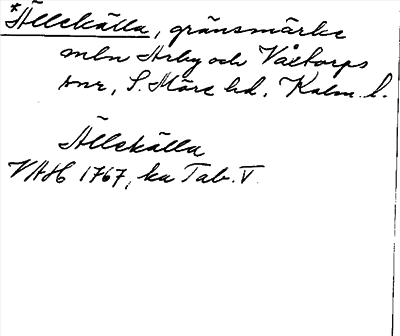 *Ällekälla, gränsmärke
mln Arby och Våxtorps
snr, S. Möre hd, Kalm. l.
Ällekälla
VAH 1767, ka Tab. V.